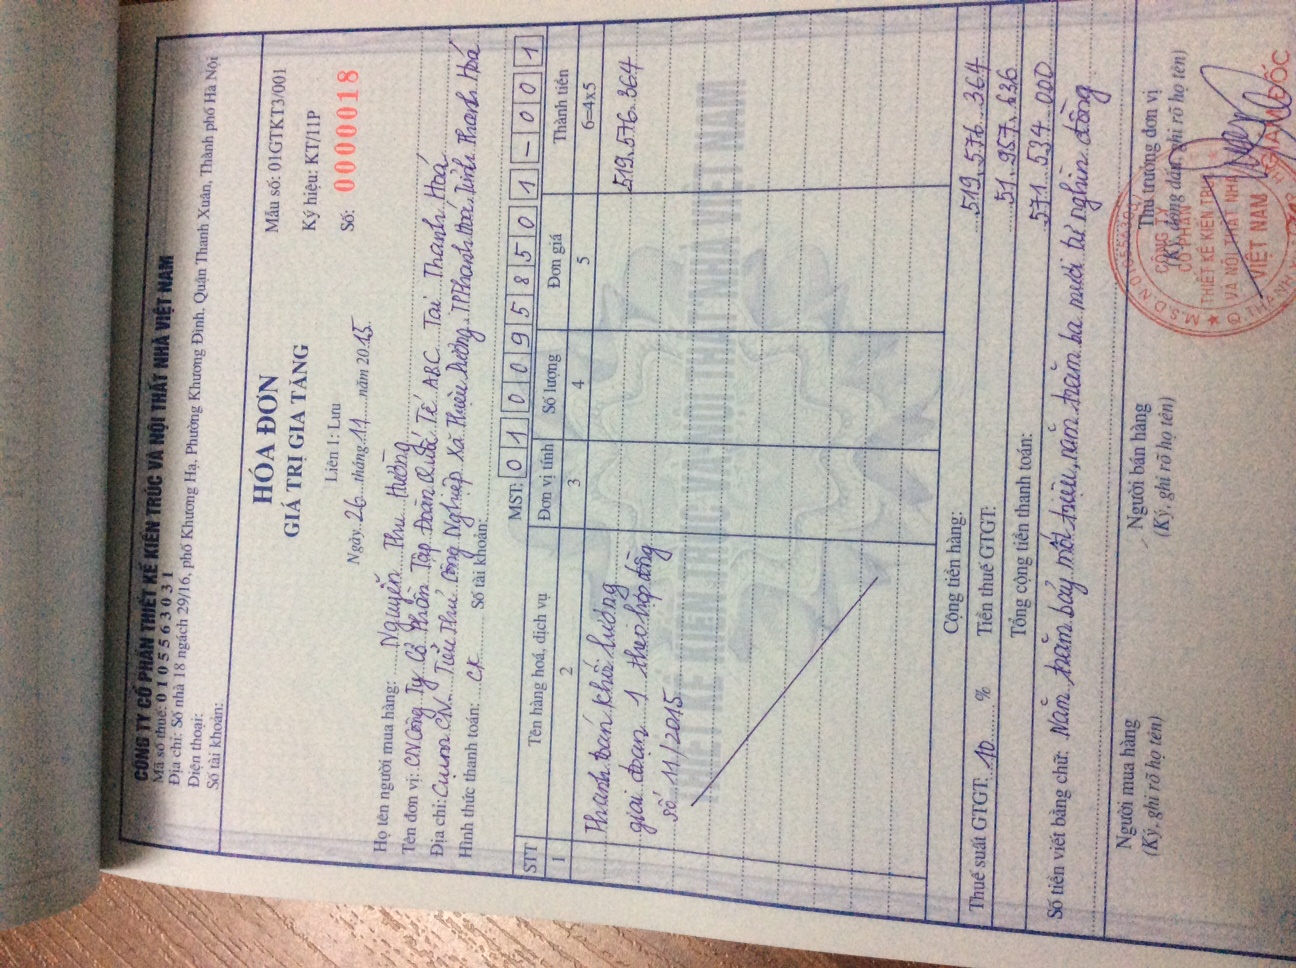 CÔNG TY CỔ PHẦN THIẾT KẾ KIẾN TRÚC VÀ NỘI THẤT NHÀ VIỆT NAM
Mã số thuế: 0105563031
Địa chỉ: Số nhà 18 ngách 29/16, phố Khương Hạ, Phường Khương Đình, Quận Thanh Xuân, Thành phố Hà Nội
Điện thoại:
Số tài khoản:
HÓA ĐƠN
GIÁ TRỊ GIA TĂNG
Liên 1: Lưu
Ngày 26 tháng 11 năm 2015
Mẫu số: 01GTKT3/001
Ký hiệu: KT/11P
Số: 0000018
Họ tên người mua hàng: Nguyễn Thu Hường
Tên đơn vị: CN Công Ty Cổ Phần Tập Đoàn Quốc Tế ABC Tại Thanh Hoá
Địa chỉ: Cụm CN, Tiểu Thủ Công Nghiệp Xã Thiệu Dương, TP Thanh Hoá, Tỉnh Thanh Hoá
Hình thức thanh toán: CK Số tài khoản:
MST: 0100958501-001
STT Tên hàng, hoá, dịch vụ Đơn vị tính Số lượng Đơn giá Thành tiền
1 2 3 4 5 6=4x5
Thanh toán khối lượng 519.576.364
giai đoạn 1 theo hợp đồng
số 11/2015
THIẾT KẾ KIẾN TRÚC VÀ NỘI THẤT NHÀ VIỆT NAM
Cộng tiền hàng: 519,576 364
Thuế suất GTGT: 10 % Tiền thuế GTGT: 51.957.636
Tổng cộng tiền thanh toán: 571.534 000
Số tiền viết bằng chữ: Năm trăm bảy mốt triệu, năm trăm ba mươi tư nghìn đồng
Người mua hàng Người bán hàng Thủ trưởng đơn vị
(Ký, ghi rõ họ tên) (Ký, ghi rõ họ tên) (Ký, đóng dấu, ghi rõ họ tên)
CÔNG TY
CỔ PHẦN
THIẾT KẾ KIẾN TRÚC
VÀ NỘI THẤT NHÀ
VIỆT NAM
GIÁM ĐỐC